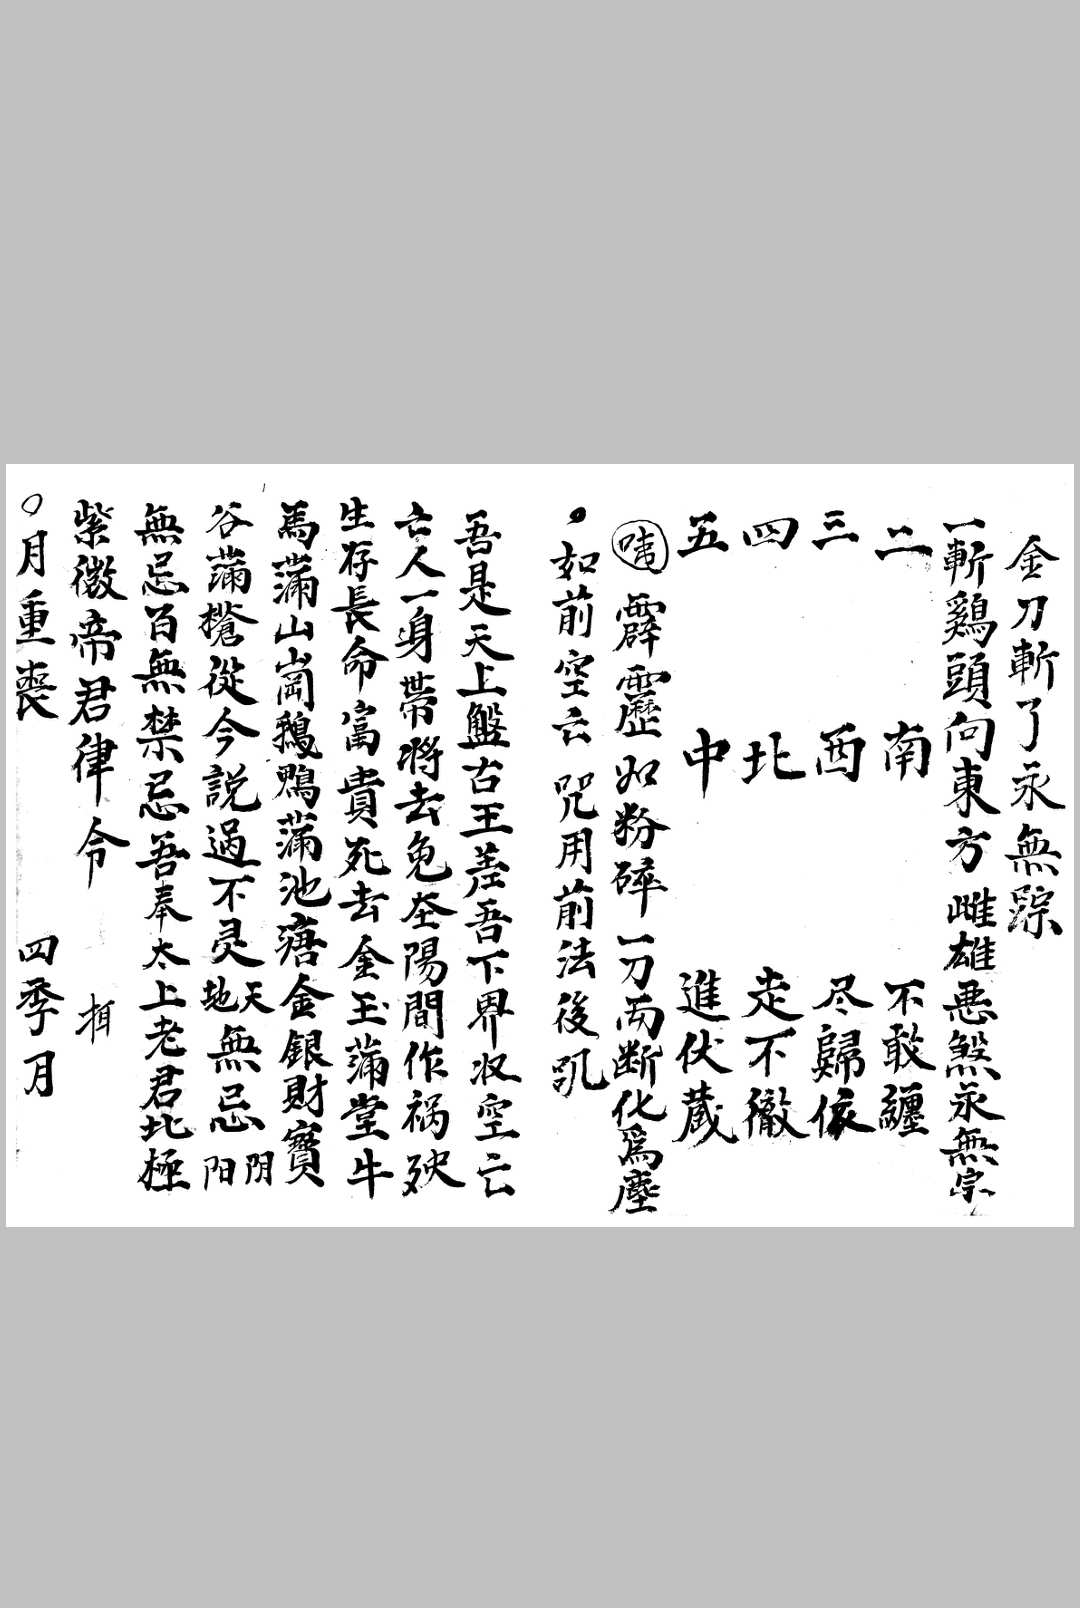 金刀斬了永無踪
一斬鷄頭向東方 雌雄恶煞永無宗
二 南 不敢纏
三 西 尽歸依
四 北 走不徹
五 中 進伏藏
霹靂如粉碎一刀两断化爲塵
如前空云 咒用前法後
吾是天上盤古王差吾下界收空亡
亡人一身帶將去免在陽間作祸殃
生存長命富貴死去金玉滿堂牛
馬滿山崗鵝鴨滿池塘金銀財寶
谷滿槍從今説過不灵天地無忌阴阳
無忌百無禁忌吾奉太上老君北極
紫微帝君律令
月重丧 四季月